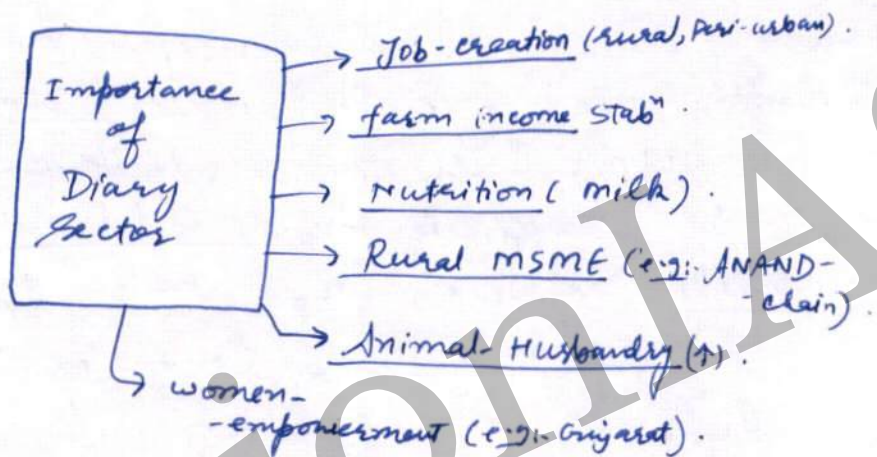 Importance
of
Diary
Sector
→ Job-creation (rural, Peri-urban).
→ farm income stabⁿ.
→ Nutrition (milk).
→ Rural MSME (e:g:- ANAND-
-chain).
→ Animal-Husbandry (↑).
→ women-
-empowerment (e:g:- Gujarat).
ionIA